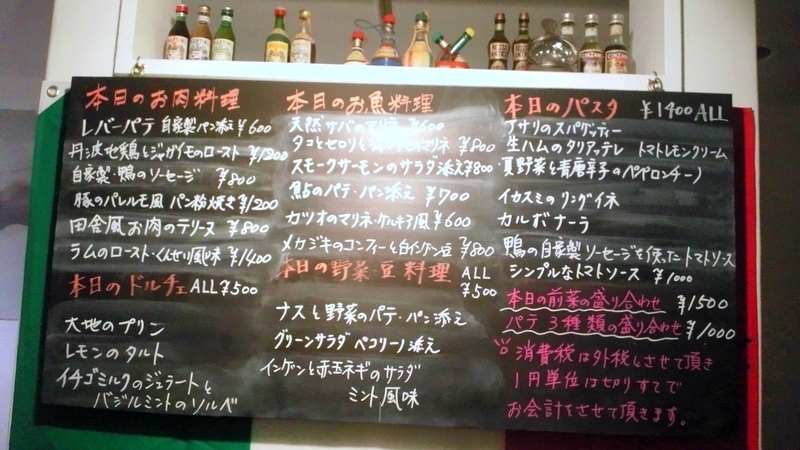 本日のお肉料理
レバーパテ 自家製パン添え ¥600
丹波地鶏とジャガイモのロースト ¥1200
自家製・鴨のソーセージ ¥800
豚のパレルモ風 パン粉焼き ¥1200
田舎風お肉のテリーヌ ¥800
ラムのロースト・くんせい風味 ¥1400
本日のドルチェ ALL ¥500
大地のプリン
レモンのタルト
イチゴミルクのジェラートと
バジルミントのソルベ
本日のお魚料理
天然サバのマリネ ¥600
タコとセロリと のマリネ ¥800
スモークサーモンのサラダ添え ¥800
鮎のパテ・パン添え ¥700
カツオのマリネ・ケルキラ風 ¥600
メカジキのコンフィーと白インゲン豆 ¥800
本日の野菜・豆料理 ALL
¥500
ナスと野菜のパテ・パン添え
グリーンサラダ ペコリーノ添え
インゲンと赤玉ネギのサラダ
ミント風味
本日のパスタ ¥1400 ALL
アサリのスパゲッティー
生ハムのタリアテレ トマトレモンクリーム
夏野菜と青唐辛子のペペロンチーノ
イカスミのリングイネ
カルボナーラ
鴨の自家製ソーセージを使ったトマトソース
シンプルなトマトソース ¥1000
本日の前菜の盛り合わせ ¥1500
パテ3種類の盛り合わせ ¥1000
消費税は外税とさせて頂き
1円単位は切りすてで
お会計をさせて頂きます。